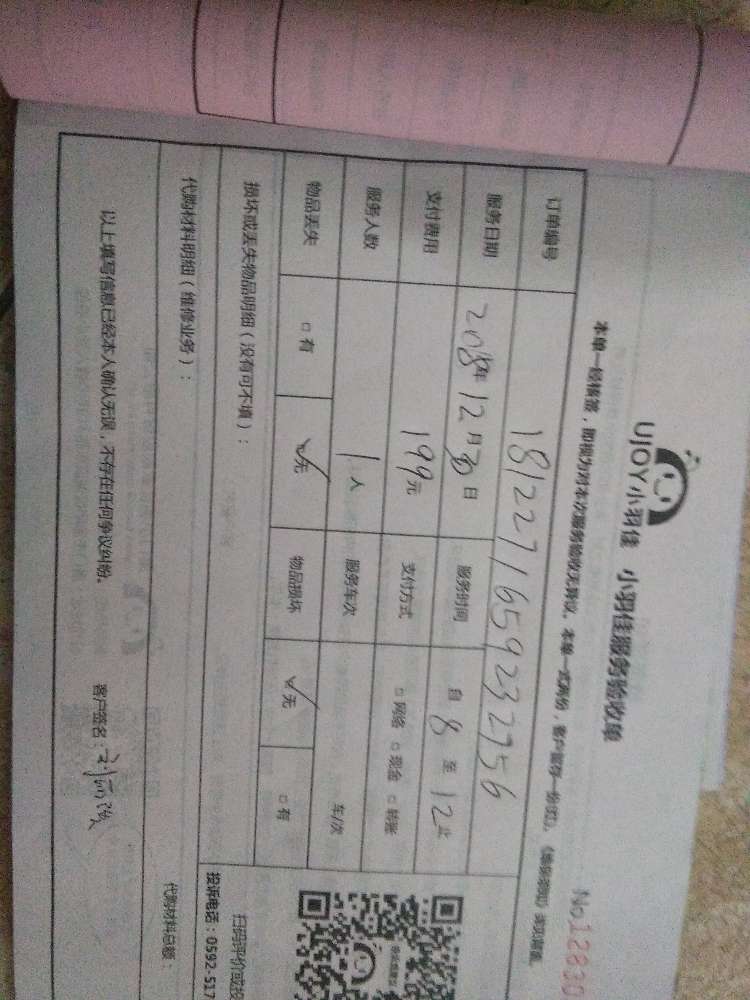 UJOY小羽佳 小羽佳服务验收单
No.12830
本单一经核签，即视为对本次服务验收无异议。本单一式两份，客户留存一份（红）。
订单编号 1812271659232756
服务日期 2018年12月30日 服务时间 自8至12止
支付费用 199元 支付方式 □网络 □现金 □转账
服务人数 1人 服务车次 车/次
物品丢失 □有 ☑无 物品损坏 ☑无 □有
损坏或丢失物品明细（没有可不填）：
扫码评价或投
投诉电话：0592-517
代购材料明细（维修业务）： 代购材料总额：
以上填写信息已经本人确认无误，不存在任何争议纠纷。 客户签名：